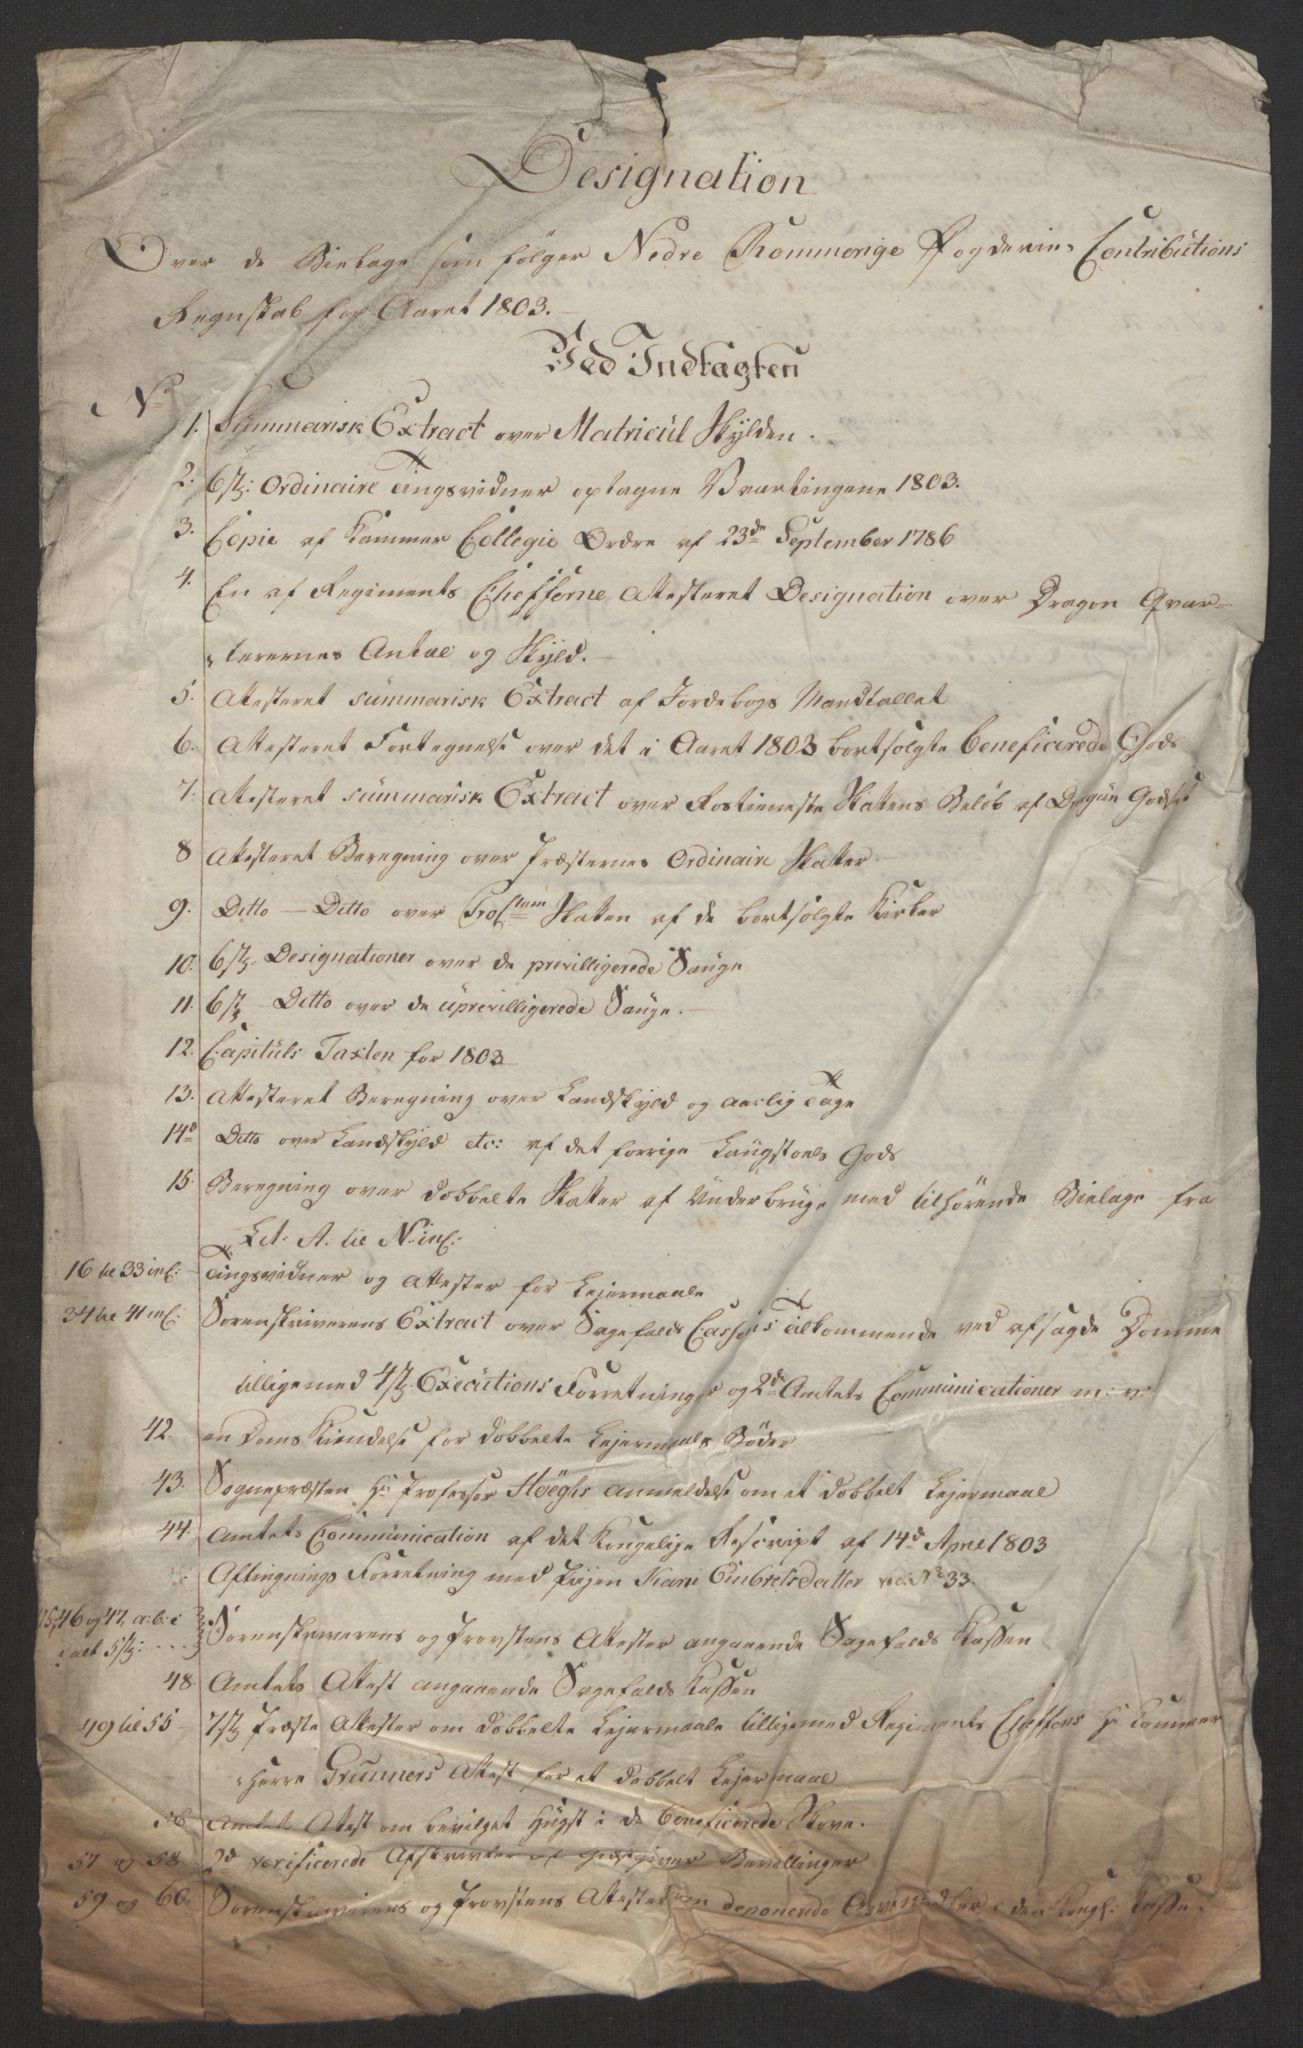 Designation
Over de Bielage som følger Nedre Rommerige Fogderies Contributions
Regnskab for Aaret 1803.
Ved Indtægten
No
1. Summarisk Extract over Matricul Skylden.
2. 6 stz: Ordinaire Tingsvidner optagne Vaartingene 1803.
3. Copie af Kammer Collegie Ordre af 23de September 1786
4. En af Regiments Chefferne Attesteret Designation over Dragon Qvar-
terernes Antal og Skyld.
5. Attesteret summarisk Extract af Jordebogs Mandtallet
6. Attesteret Fortegnelse over det i Aaret 1803 bortsolgte beneficerede Gods
7. Attesteret summarisk Extract over Rostieneste Skattens Beløb af Dragon Godset
8 Attesteret Beregning over Præsternes Ordinaire Skatter
9. Ditto — Ditto over Skatten af de bortsolgte Kirker
10. 6 stz. Designationer over de previlligerede Sauge
11. 6 stz Ditto over de uprevilligerede Sauge.
12. Capituls Taxten for 1803
13. Attesteret Beregning over Landskyld og aarlig Tage
14d Ditto over Landskyld etc: af det forrige Laugstoels Gods
15. Beregning over dobbelte Skatter af Underbruge med tilhørende Bielage fra
Lit: A. til N. incl:
16 til 33 incl: Tingsvidner og Attester for Lejermaale
34 til 41 incl: Sorenskriverens Extract over Sagefalds Cassens Tilkommende ved afsagde Domme
tilligemed 4 stz. Executions Forretninger og 2de Amtets Communicationer m: v:
42. en Doms Kiendelse for dobbelte Lejermaals Bøder
43. Sognepræsten Hr Professor Høeghs anmeldelse om et dobbelt Lejermaal
44. Amtets Communication af det Kongelige Rescript af 14d April 1803
Aftingnings Forretning med Pigen Kari Embretsdatter vid: No 33.
45, 46 og 47, a: b: c
i alt 5 stz: .... Sorenskriverens og Provstens Attester angaaende Sagefalds Kassen
48. Amtets Attest angaaende Sagefalds Kassen
49 til 55 7 stz Præste Attester om dobbelte Lejermaale tilligemed Regiments Cheffens Hr Kammer
Herre Grüners Attest for et dobbelt Lejermaal
56 Amtets Attest om bevilget Hugst i de beneficerede Skove.
57 og 58 2d verificerede Afskrivter af Giestgiver Bevillinger
59 og 60. Sorenskriverens og Provstens Attester om deponerede Arvemidler i den Kongl: Kasse.